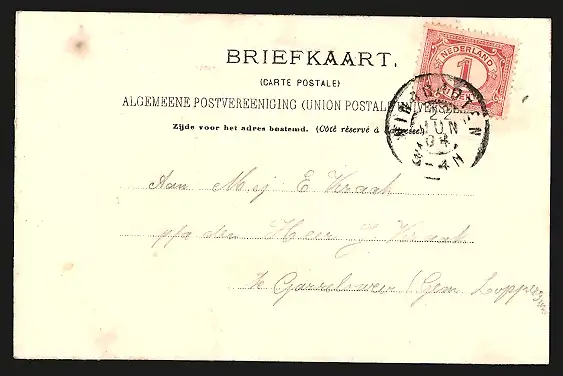 BRIEFKAART.
(CARTE POSTALE)
ALGEMEENE POSTVEREENIGING (UNION POSTALE UNIVERSELLE)
Zijde voor het adres bestemd. (Côté réservé à l'adresse)
NEDERLAND
1
22
JUN
04
-4N
Aan Mej E Kraak
p/a den Heer J Kraak
te Garrelsweer (Gem. Loppersum